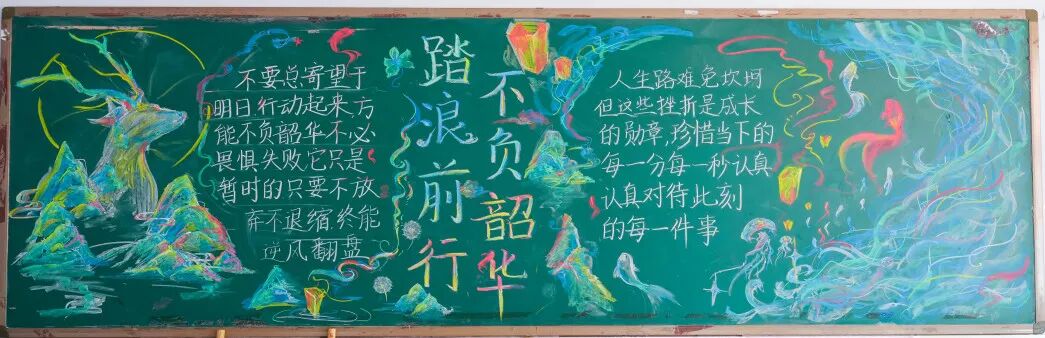 不要总寄望于
明日,行动起来,方
能不负韶华不必
畏惧失败,它只是
暂时的只要不放
弃不退缩,终能
逆风翻盘
踏浪前行
不负韶华
人生路难免坎坷
但这些挫折是成长
的勋章,珍惜当下的
每一分每一秒认真
认真对待此刻
的每一件事